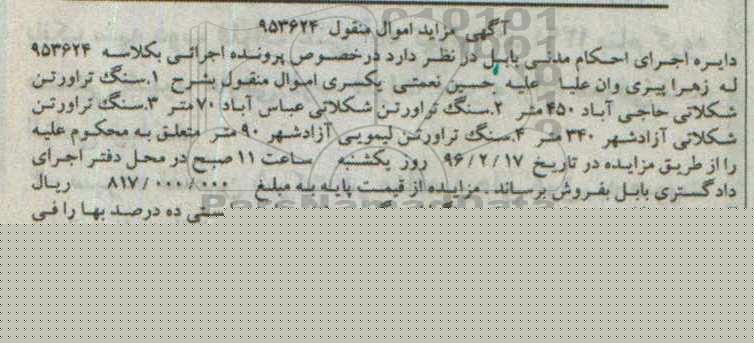 آگهی مزاید اموال منقول ۹۵۳۶۲۴
دایره اجرای احکام مدنی بابل در نظر دارد درخصوص پرونده اجرائی بکلاسه ۹۵۳۶۲۴
له زهرا پیری وان علیا علیه حسین نعمتی یکسری اموال منقول بشرح ۱.سنگ تراورتن
شکلاتی حاجی آباد ۴۵۰ متر ۲.سنگ تراورتن شکلاتی عباس آباد ۷۰ متر ۳.سنگ تراورتن
شکلاتی آزادشهر ۳۴۰ متر ۴.سنگ تراورتن لیمویی آزادشهر ۹۰ متر متعلق به محکوم علیه
را از طریق مزایده در تاریخ ۹۶/۲/۱۷ روز یکشنبه ساعت ۱۱ صبح در محل دفتر اجرای
دادگستری بابل بفروش برساند. مزایده از قیمت پایه به مبلغ ۸۱۷/۰۰۰/۰۰۰ ریال
ده درصد بها را فی